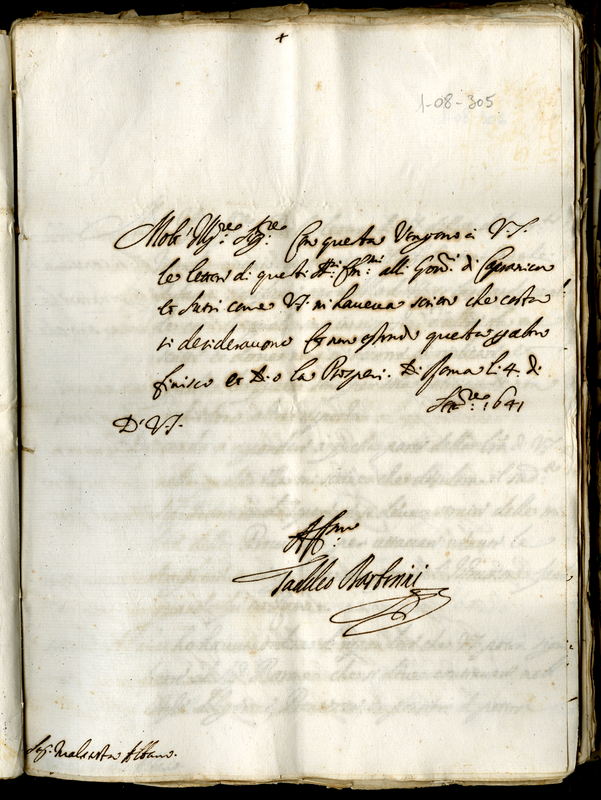 +
1-08-305
Molt' Ill.re Sig.re Con questa vengono à V.S.
le lettere di questi SS.ri Em.mi alli Gov.ri di Capranica
et Sutri come V.S. mi haveva scritto che costà
si desideravano Et non essendo questa per altro
finisco et D.o la Prosperi. Di Roma li 4 di
Sett.re 1641
D' V.S.
Aff.mo
Taddeo Barberini
Sig. Malatesta Albani.